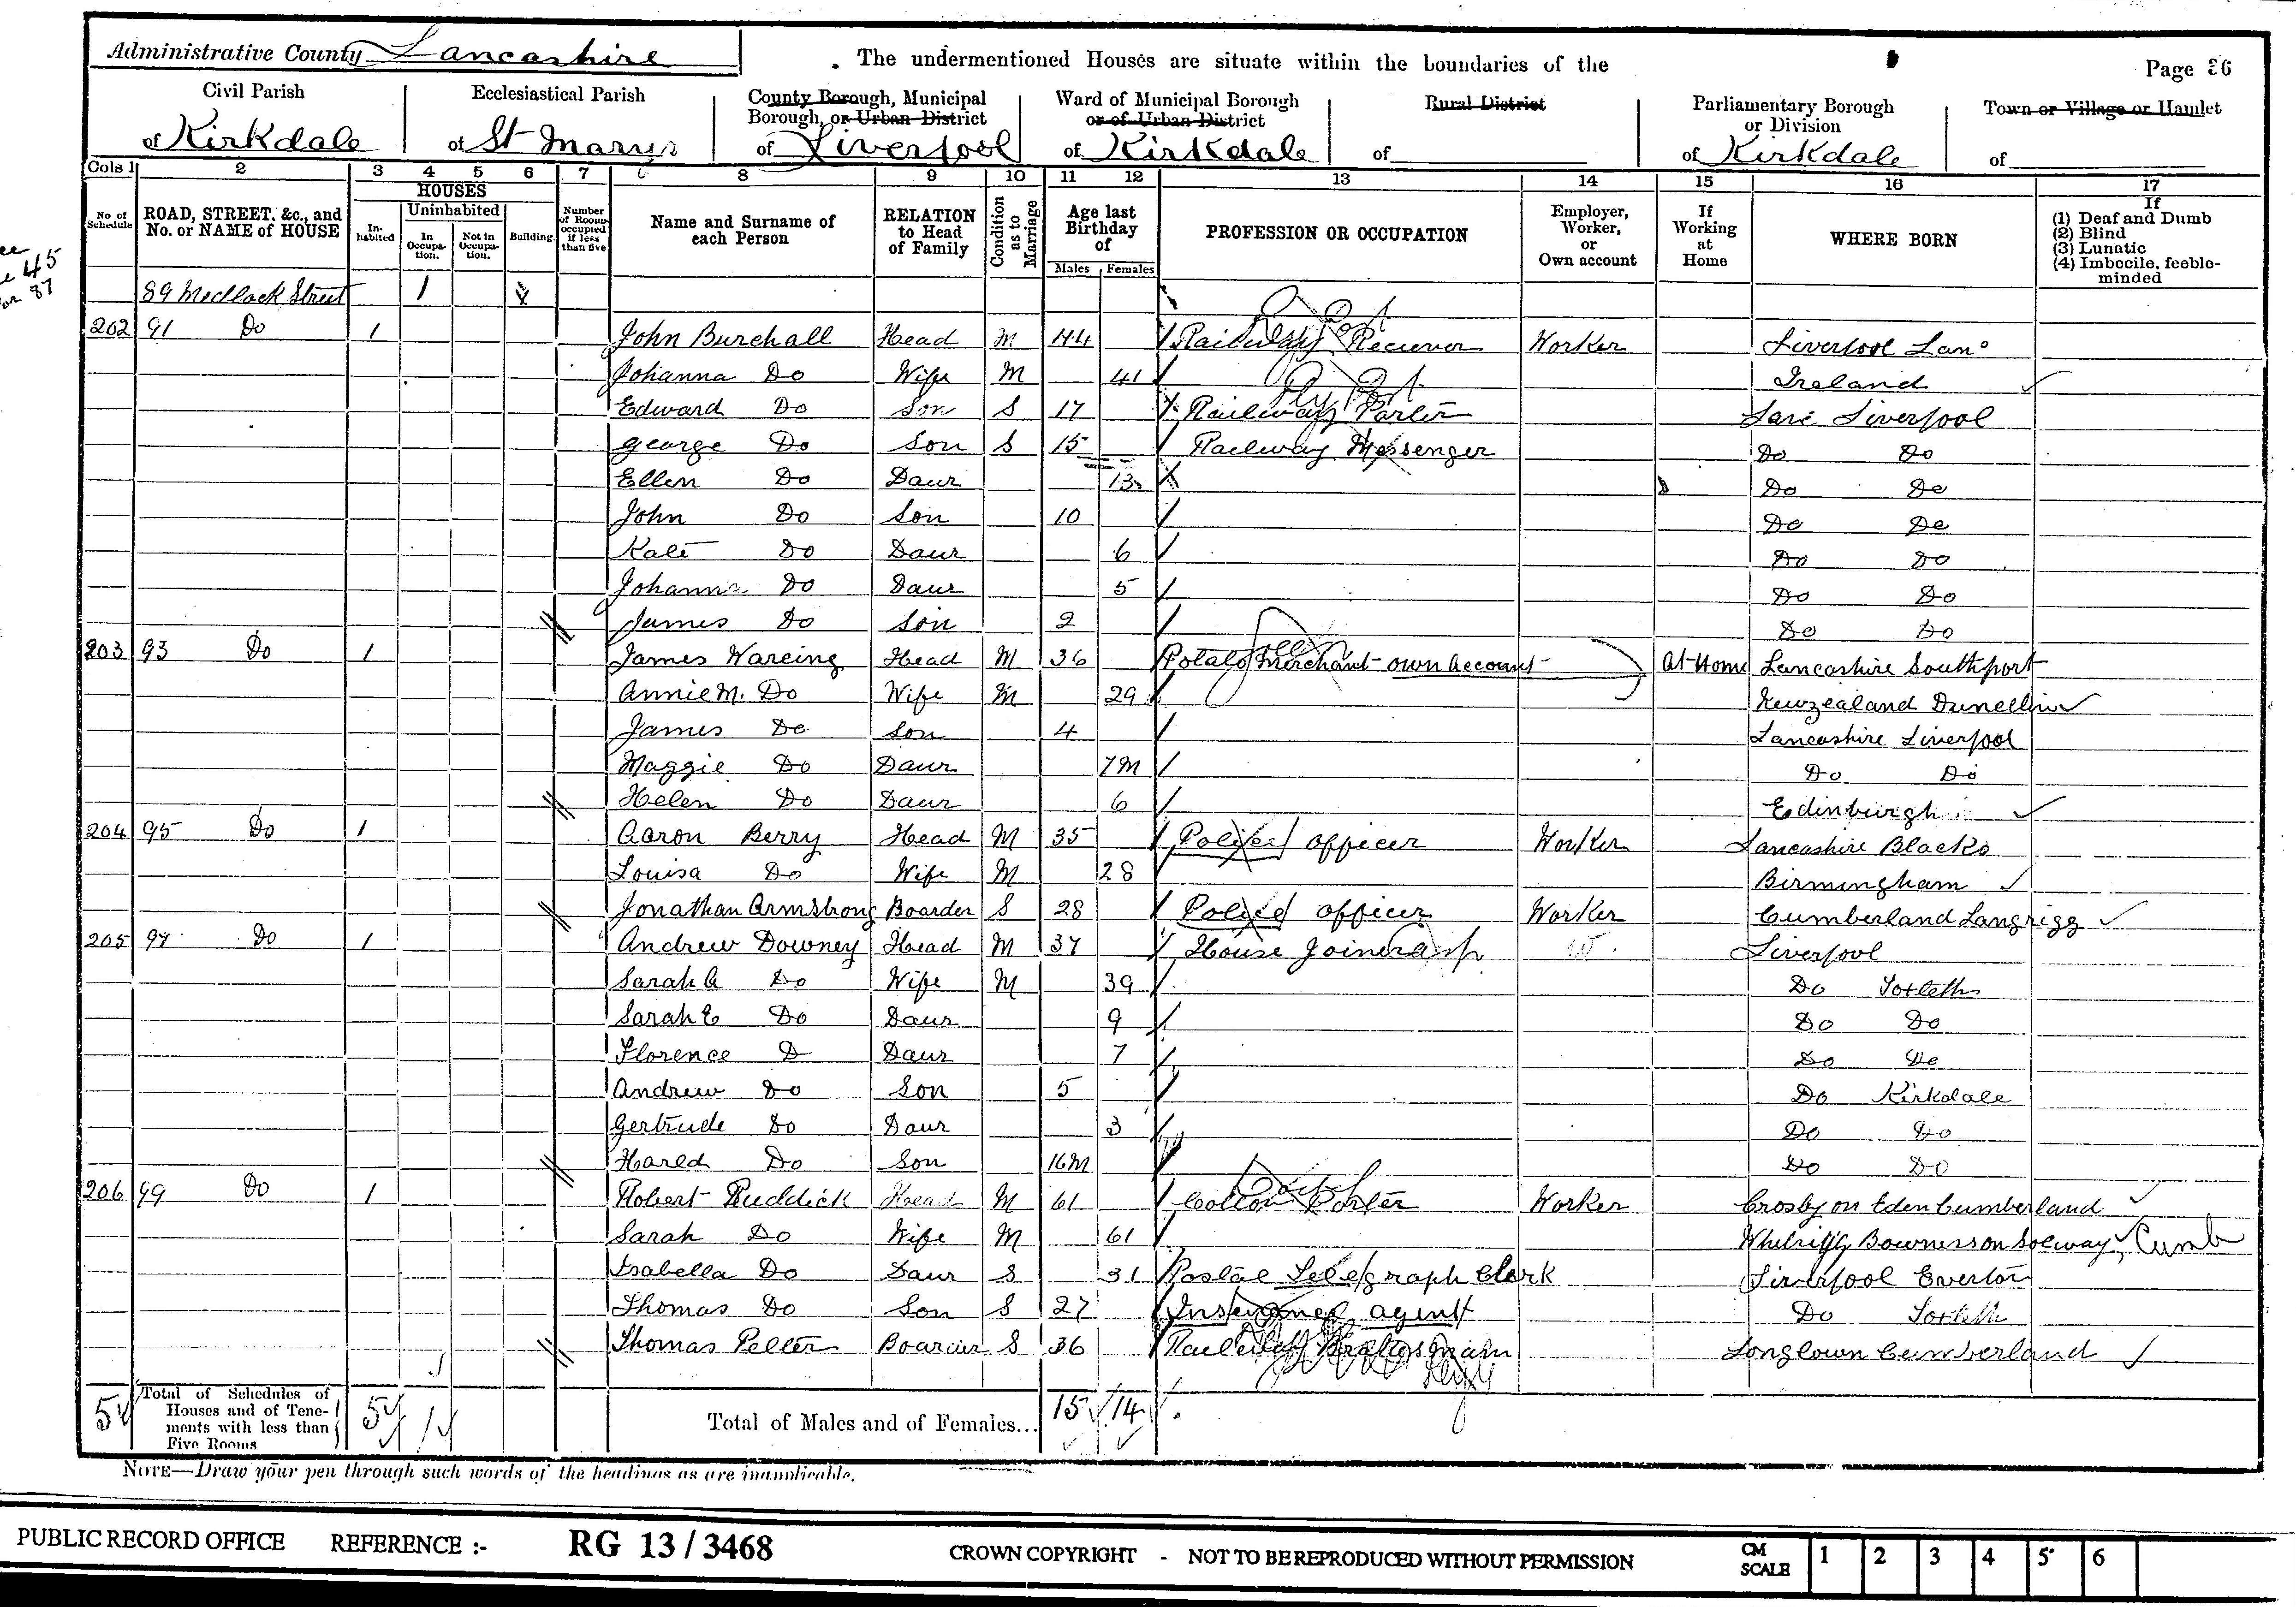 Administrative County Lancashire
The undermentioned Houses are situate within the boundaries of the
Page 26
Civil Parish of Kirkdale
Ecclesiastical Parish of St Marys
County Borough, Municipal Borough, or Urban District of Liverpool
Ward of Municipal Borough or of Urban District of Kirkdale
Rural District of
Parliamentary Borough or Division of Kirkdale
Town or Village or Hamlet of
Cols 1 2 3 4 5 6 7 8 9 10 11 12 13 14 15 16 17
No of Schedule
ROAD, STREET, &c., and No. or NAME of HOUSE
HOUSES
In-habited
Uninhabited
In Occupa-tion.
Not in Occupa-tion.
Building
Number of Rooms occupied if less than five
Name and Surname of each Person
RELATION to Head of Family
Condition as to Marriage
Age last Birthday of
Males Females
PROFESSION OR OCCUPATION
Employer, Worker, or Own account
If Working at Home
WHERE BORN
If
(1) Deaf and Dumb
(2) Blind
(3) Lunatic
(4) Imbecile, feeble-minded
45
87
89 Medlock Street 1
202 91 Do 1 John Burchall Head M 44 Railway Reciever Worker Liverpool Lanc
Johanna Do Wife M 41 Ireland
Edward Do Son S 17 Railway Porter Lanc Liverpool
George Do Son S 15 Railway Messenger Do Do
Ellen Do Daur 13 Do Do
John Do Son 10 Do Do
Kate Do Daur 6 Do Do
Johanna Do Daur 5 Do Do
James Do Son 2 Do Do
203 93 Do 1 James Wareing Head M 36 Potato Merchant own account At Home Lancashire Southport
Annie M. Do Wife M 29 Newzealand Dunellin
James Do Son 4 Lancashire Liverpool
Maggie Do Daur 7M Do Do
Helen Do Daur 6 Edinburgh
204 95 Do 1 Aaron Berry Head M 35 Police officer Worker Lancashire Blacko
Louisa Do Wife M 28 Birmingham
Jonathan Armstrong Boarder S 28 Police officer Worker Cumberland Langrigg
205 97 Do 1 Andrew Downey Head M 37 House Joiner Liverpool
Sarah A Do Wife M 39 Do Toxteth
Sarah E Do Daur 9 Do Do
Florence D Daur 7 Do Do
Andrew Do Son 5 Do Kirkdale
Gertrude Do Daur 3 Do Do
Harold Do Son 16M Do Do
206 99 Do 1 Robert Ruddick Head M 61 Cotton Porter Worker Crosby on Eden Cumberland
Sarah Do Wife M 61 Bowness on Solway, Cumb
Isabella Do Daur S 31 Postal Telegraph Clerk Liverpool Everton
Thomas Do Son S 27 Insurance agent Do Toxteth
Thomas Pelter Boarder S 36 Railway Longtown Cumberland
5 Total of Schedules of Houses and of Tene-ments with less than Five Rooms 5 1 Total of Males and of Females... 15 14
NOTE—Draw your pen through such words of the headings as are inapplicable.
PUBLIC RECORD OFFICE REFERENCE :- RG 13 / 3468 CROWN COPYRIGHT - NOT TO BE REPRODUCED WITHOUT PERMISSION CM SCALE 1 2 3 4 5 6